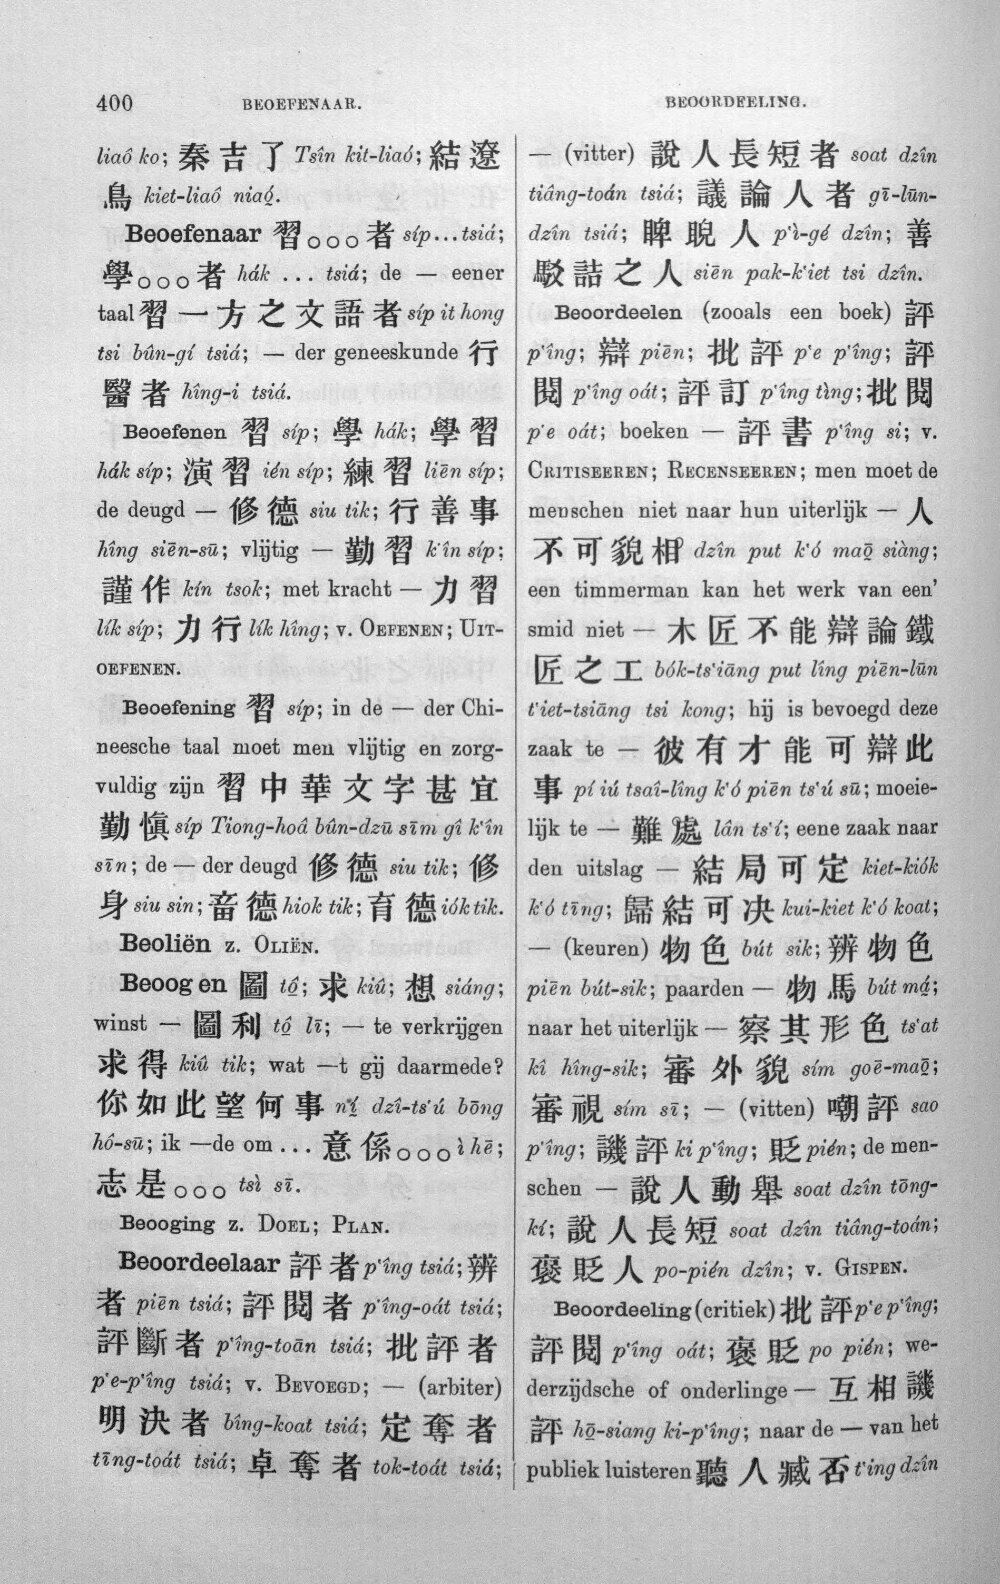 400 BEOEFENAAR. BEOORDEELING.
liaô ko; 秦吉了 Tsîn kit-liaó; 結遼
鳥 kiet-liaô niaó.
Beoefenaar 習○○○者 síp...tsiá;
學○○○者 hák ... tsiá; de — eener
taal 習一方之文語者 síp it hong
tsi bûn-gí tsiá; — der geneeskunde 行
醫者 hîng-i tsiá.
Beoefenen 習 síp; 學 hák; 學習
hák síp; 演習 ién síp; 練習 liēn síp;
de deugd — 修德 siu tik; 行善事
hîng siēn-sū; vlijtig — 勤習 k'în síp;
謹作 kín tsok; met kracht — 力習
lík síp; 力行 lík hîng; v. OEFENEN; UIT-
OEFENEN.
Beoefening 習 síp; in de — der Chi-
neesche taal moet men vlijtig en zorg-
vuldig zijn 習中華文字甚宜
勤愼 síp Tiong-hoâ bûn-dzū sīm gî k'în
sīn; de — der deugd 修德 siu tik; 修
身 siu sin; 畜德 hiok tik; 育德 iók tik.
Beoliën z. OLIËN.
Beoogen 圖 tô; 求 kiû; 想 siáng;
winst — 圖利 tô lī; — te verkrijgen
求得 kiû tik; wat —t gij daarmede?
你如此望何事 ní dzî-ts'ú bōng
hô-sū; ik —de om ... 意係○○○ ì hē;
志是○○○ tsì sī.
Beooging z. DOEL; PLAN.
Beoordeelaar 評者 p'îng tsiá; 辨
者 piēn tsiá; 評閱者 p'îng-oát tsiá;
評斷者 p'îng-toān tsiá; 批評者
p'e-p'îng tsiá; v. BEVOEGD; — (arbiter)
明決者 bîng-koat tsiá; 定奪者
tīng-toát tsiá; 卓奪者 tok-toát tsiá;
— (vitter) 說人長短者 soat dzîn
tiâng-toán tsiá; 議論人者 gī-lūn-
dzîn tsiá; 睥睨人 p'ì-gé dzîn; 善
駁詰之人 siēn pak-k'iet tsi dzîn.
Beoordeelen (zooals een boek) 評
p'îng; 辯 piēn; 批評 p'e p'îng; 評
閱 p'îng oát; 評訂 p'îng tìng; 批閱
p'e oát; boeken — 評書 p'îng si; v.
CRITISEEREN; RECENSEEREN; men moet de
menschen niet naar hun uiterlijk — 人
不可貌相 dzîn put k'ó maō siàng;
een timmerman kan het werk van een'
smid niet — 木匠不能辯論鐵
匠之工 bók-ts'iāng put lîng piēn-lūn
t'iet-tsiāng tsi kong; hij is bevoegd deze
zaak te — 彼有才能可辯此
事 pí iú tsaî-lîng k'ó piēn ts'ú sū; moeie-
lijk te — 難處 lân ts'í; eene zaak naar
den uitslag — 結局可定 kiet-kiók
k'ó tīng; 歸結可决 kui-kiet k'ó koat;
— (keuren) 物色 bút sik; 辨物色
piēn bút-sik; paarden — 物馬 bút má;
naar het uiterlijk — 察其形色 ts'at
kî hîng-sik; 審外貌 sím goē-maō;
審視 sím sī; — (vitten) 嘲評 sao
p'îng; 譏評 ki p'îng; 貶 pién; de men-
schen — 說人動舉 soat dzîn tōng-
kí; 說人長短 soat dzîn tiâng-toán;
褒貶人 po-pién dzîn; v. GISPEN.
Beoordeeling (critiek) 批評 p'e p'îng;
評閱 p'îng oát; 褒貶 po pién; we-
derzijdsche of onderlinge — 互相譏
評 hō-siang ki-p'îng; naar de — van het
publiek luisteren 聽人臧否 t'ing dzîn